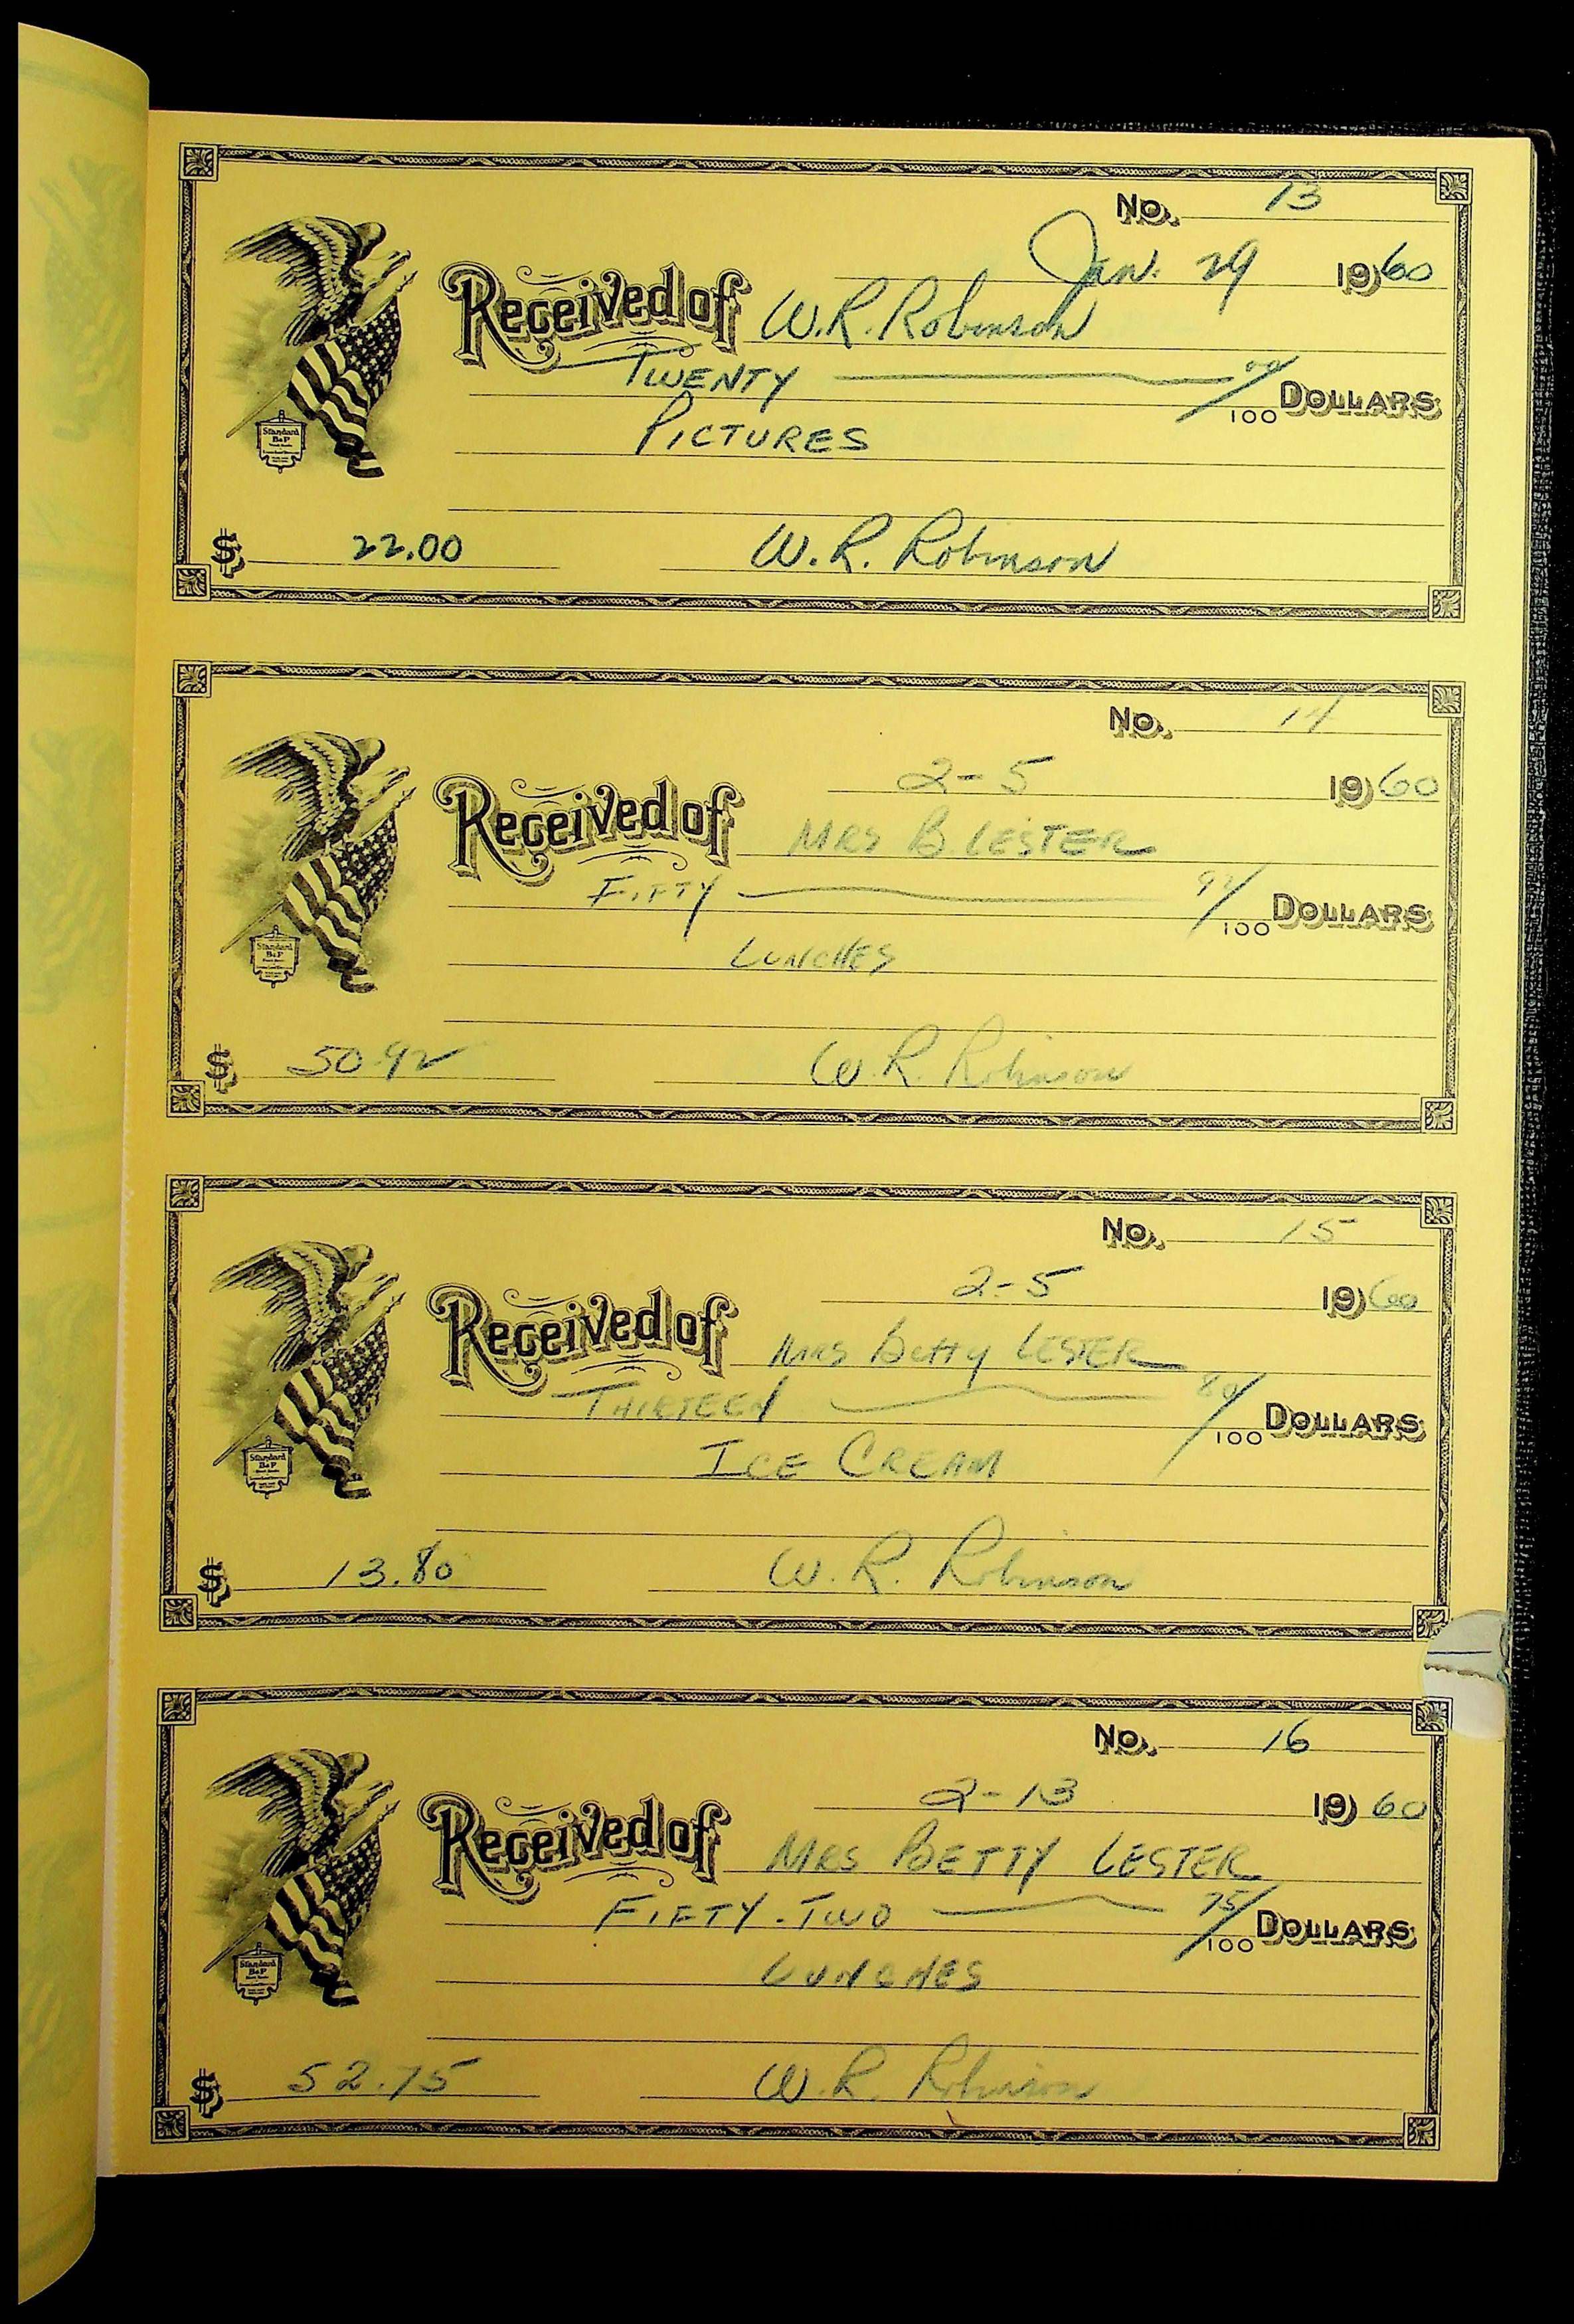 No. 13
Jan. 29 1960
Received of W.R. Robinson
TWENTY 00/100 DOLLARS
PICTURES
Standard B&P
$ 22.00 W.R. Robinson
No. 14
2-5 1960
Received of MRS B. LESTER
FIFTY 92/100 DOLLARS
LUNCHES
Standard B&P
$ 50.92 W.R. Robinson
No. 15
2-5 1960
Received of MRS Betty LESTER
THIRTEEN 80/100 DOLLARS
ICE CREAM
Standard B&P
$ 13.80 W.R. Robinson
No. 16
2-13 1960
Received of MRS BETTY LESTER
FIFTY-TWO 75/100 DOLLARS
LUNCHES
Standard B&P
$ 52.75 W.R. Robinson